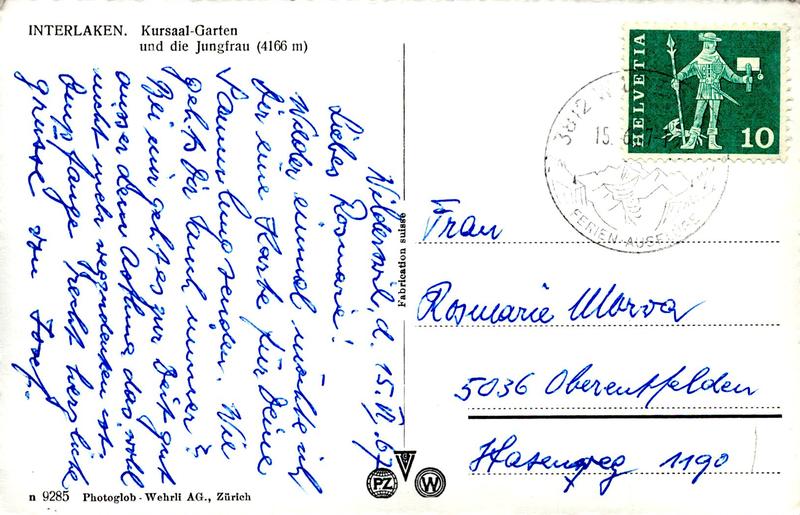 INTERLAKEN. Kursaal-Garten
und die Jungfrau (4166 m)
Wilderswil, d. 15. VI. 67
Liebes Rosmarie!
Wieder einmal möchte ich
Dir eine Karte für Deine
Sammlung senden. Wie
geht's Dir sonst immer?
Bei mir geht es zur Zeit gut
ausser dem Asthma, das wohl
nicht mehr wegzudenken ist.
Empfange recht herzliche
Grüsse von Josef.
n 9285 Photoglob-Wehrli AG., Zürich
Fabrication suisse
PZ
W
HELVETIA
10
3812
15. 6. 
FERIEN-
Frau
Rosmarie Morva
5036 Oberentfelden
Hasenweg 1190